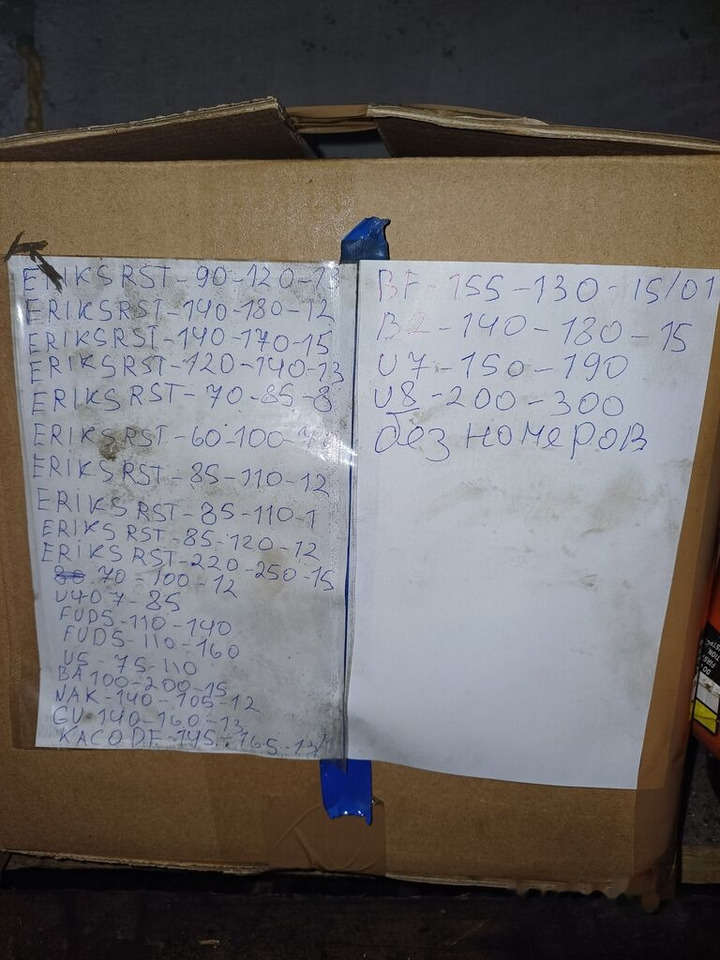 ERIKS RST - 90-120-13
ERIKS RST - 140-180-12
ERIKS RST - 140-170-15
ERIKS RST - 120-140-13
ERIKS RST - 70-85-8
ERIKS RST - 60-100-
ERIKS RST - 85-110-12
ERIKS RST - 85-110-1
ERIKS RST - 85-120-12
ERIKS RST - 220-250-15
70-100-12
U407-85
FUD5-110-140
FUD5-110-160
U5-75-110
BA 100-200-15
NAK-140-105-12
GU-140-160-13
KACO DF-145-165-13/
BF-155-130-15/01
B2-140-180-15
U7-150-190
U8-200-300
без номеров